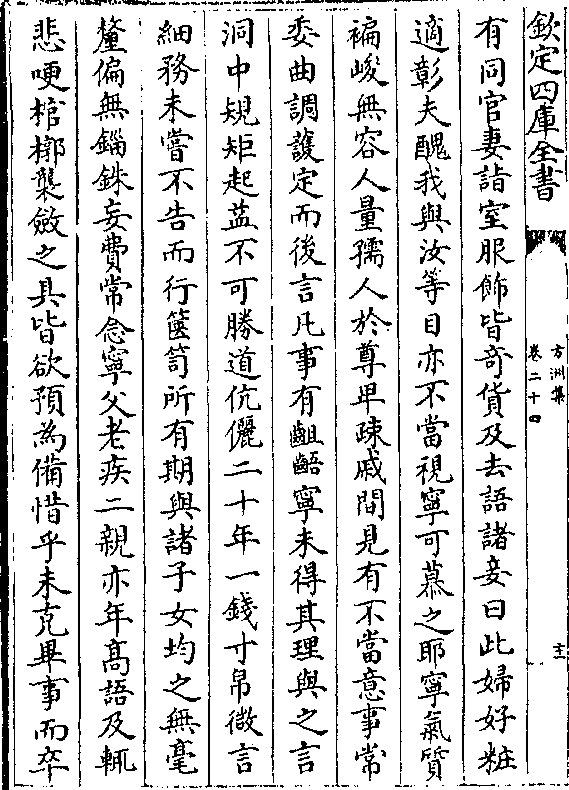 欽定四庫全書
方洲集
卷二十四
主
有同官妻詣室服飾皆奇貨及去語諸妾曰此婦好粧
適彰夫醜我與汝等目亦不當視寧可慕之耶寧氣質
褊峻無容人量孺人於尊卑疎戚間見有不當意事常
委曲調護定而後言凡事有齟齬寧未得其理與之言
洞中規矩起葢不可勝道伉儷二十年一錢寸帛微言
細務未嘗不告而行篋笥所有期與諸子女均之無毫
釐偏無錙銖妄費常念寧父老疾二親亦年髙語及輒
悲哽棺槨襲斂之具皆欲預為備惜乎未克畢事而卒